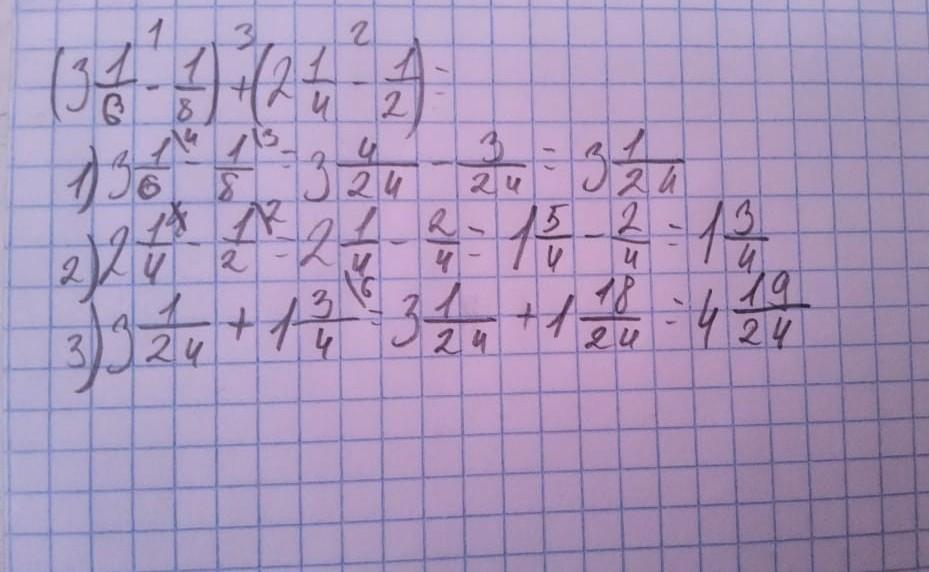 (3 1/6 - 1/8) + (2 1/4 - 1/2) =
1 3 2
1) 3 1/6 \4 - 1/8 \3 = 3 4/24 - 3/24 = 3 1/24
2) 2 1/4 - 1/2 \2 = 2 1/4 - 2/4 = 1 5/4 - 2/4 = 1 3/4
3) 3 1/24 + 1 3/4 \6 = 3 1/24 + 1 18/24 = 4 19/24